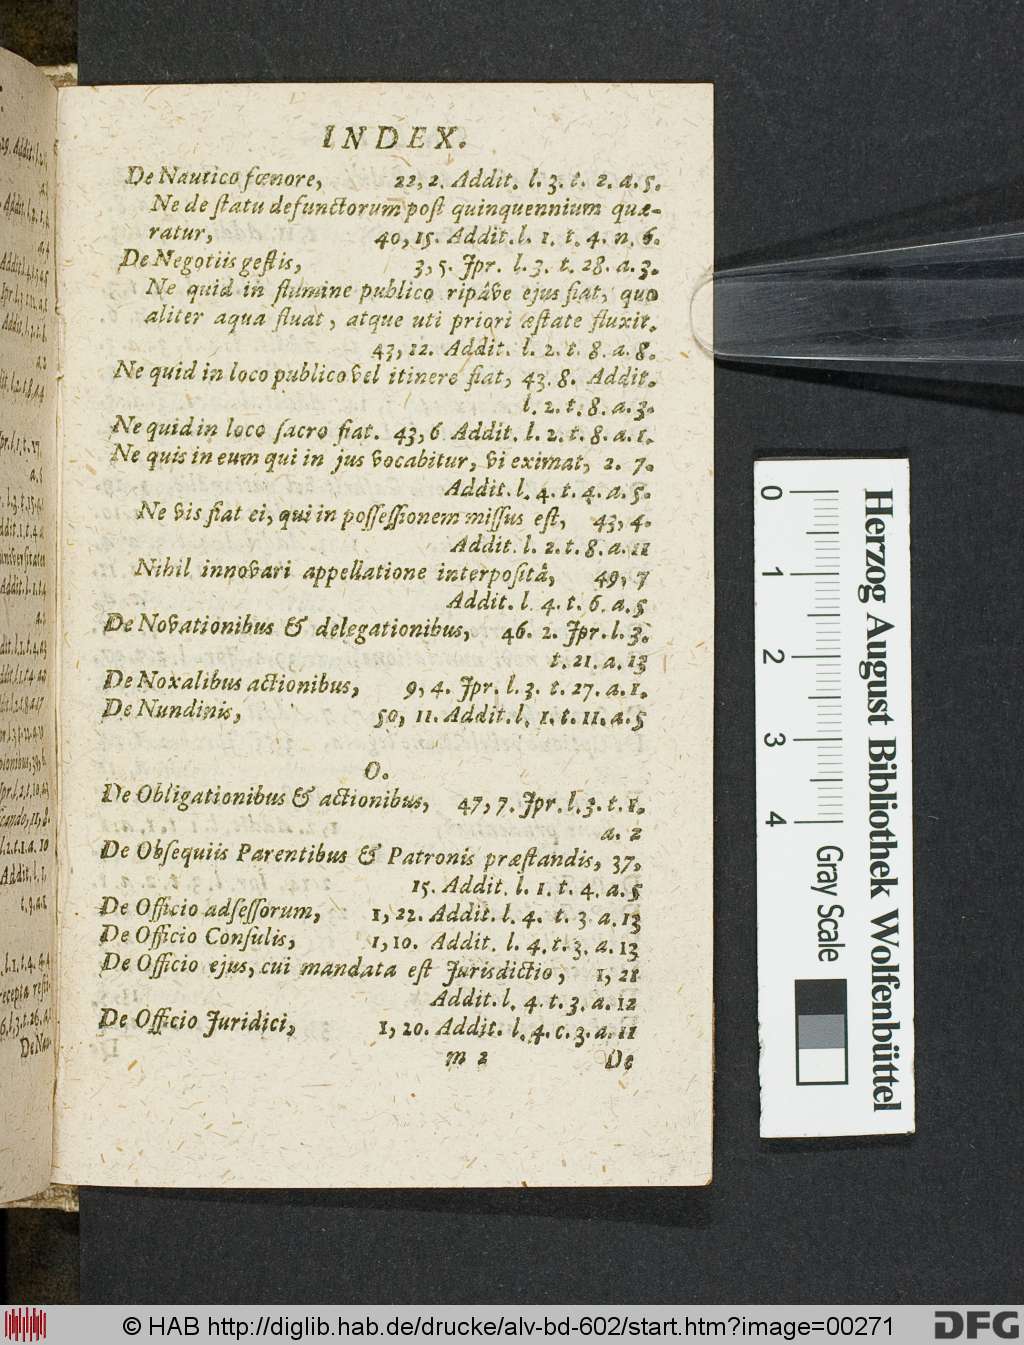 INDEX.
De Nautico fœnore, 22, 2. Addit. l. 3. t. 2. a. 5.
Ne de ſtatu defunctorum poſt quinquennium quæ-
ratur, 40, 15. Addit. l. 1. t. 4. n. 6.
De Negotiis geſtis, 3, 5. Jpr. l. 3. t. 28. a. 3.
Ne quid in flumine publico ripâve ejus fiat, quo
aliter aqua fluat, atque uti priori æſtate fluxit.
43, 12. Addit. l. 2. t. 8. a. 8.
Ne quid in loco publico vel itinere fiat, 43. 8. Addit.
l. 2. t. 8. a. 3.
Ne quid in loco ſacro fiat. 43, 6 Addit. l. 2. t. 8. a. 1.
Ne quis in eum qui in jus vocabitur, vi eximat, 2. 7.
Addit. l. 4. t. 4. a. 5.
Ne vis fiat ei, qui in poſſeſſionem miſſus eſt, 43, 4.
Addit. l. 2. t. 8. a. 11
Nihil innovari appellatione interpoſitâ, 49, 7
Addit. l. 4. t. 6. a. 5
De Novationibus & delegationibus, 46. 2. Jpr. l. 3.
t. 21. a. 13
De Noxalibus actionibus, 9, 4. Jpr. l. 3. t. 27. a. 1.
De Nundinis, 50, 11. Addit. l. 1. t. 11. a. 5
O.
De Obligationibus & actionibus, 47, 7. Jpr. l. 3. t. 1.
a. 2
De Obſequiis Parentibus & Patronis præſtandis, 37,
15. Addit. l. 1. t. 4. a. 5
De Officio adſeſſorum, 1, 22. Addit. l. 4. t. 3 a. 13
De Officio Conſulis, 1, 10. Addit. l. 4. t. 3. a. 13
De Officio ejus, cui mandata eſt Jurisdictio, 1, 21
Addit. l. 4. t. 3. a. 12
De Officio Juridici, 1, 20. Addit. l. 4. c. 3. a. 11
m 2 De
0 1 2 3 4
Gray Scale
Herzog August Bibliothek Wolfenbüttel
© HAB http://diglib.hab.de/drucke/alv-bd-602/start.htm?image=00271
DFG